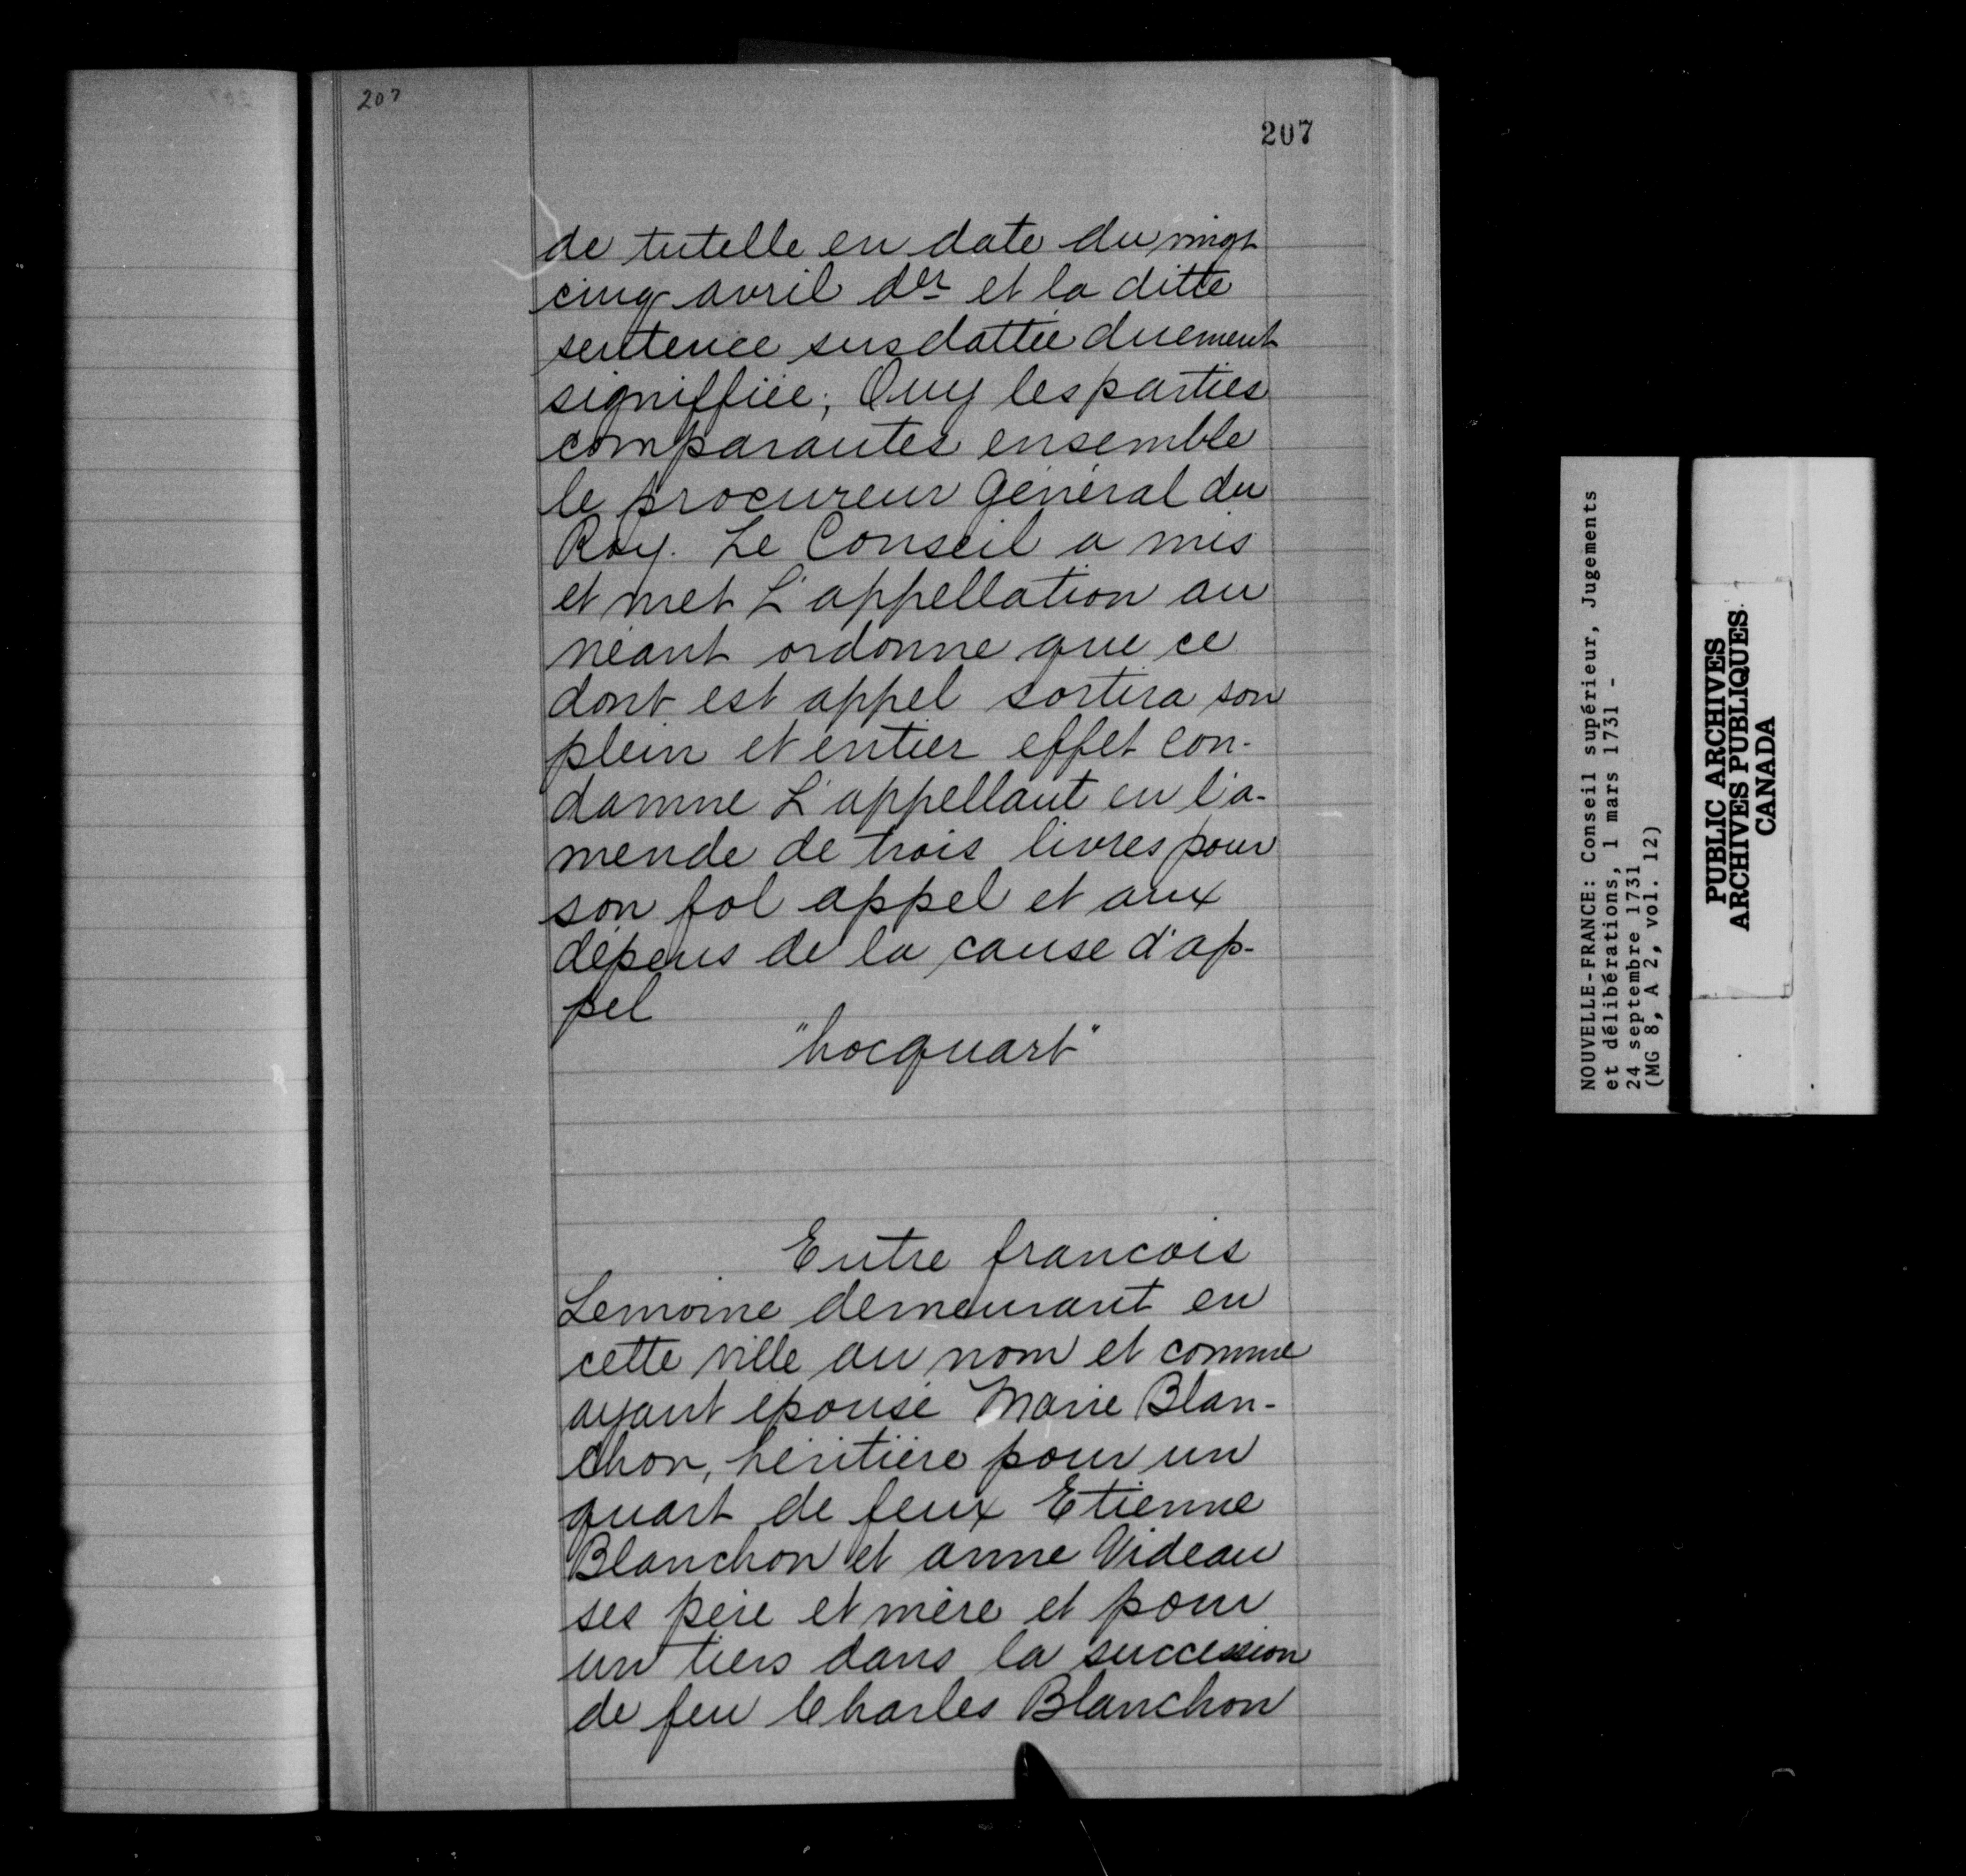 207
207
de tutelle en date du vingt
cinq avril der et la ditte
sentence susdattée duement
signiffiée; Ouy les parties
comparantes ensemble
le procureur Général du
Roy. Le Conseil a mis
et met L'appellation au
néant ordonne que ce
dont est appel sortira son
plein et entier effet con-
damne L'appellant en l'a-
mende de trois livres pour
son fol appel et aux
dépens de la cause d'ap-
pel
"hocquart"
Entre francois
Lemoine demeurant en
cette ville au nom et comme
ayant épousé Marie Blan-
chon, héritière pour un
quart de feux Etienne
Blanchon et anne Videau
ses père et mère et pour
un tiers dans la succession
de feu Charles Blanchon
NOUVELLE-FRANCE: Conseil supérieur, Jugements
et délibérations, 1 mars 1731 -
24 septembre 1731
(MG 8, A 2, vol. 12)
PUBLIC ARCHIVES
ARCHIVES PUBLIQUES
CANADA